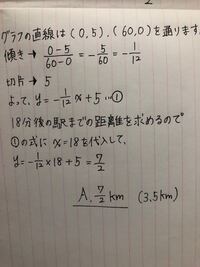 グラフの直線は(0,5).(60,0)を通ります
傾き→ 0-5/60-0 = -5/60 = -1/12
切片→ 5
よって、y=-1/12x+5…①
18分後の駅までの距離を求めるので
①の式にx=18を代入して、
y=-1/12×18+5=7/2
A. 7/2 km (3.5km)